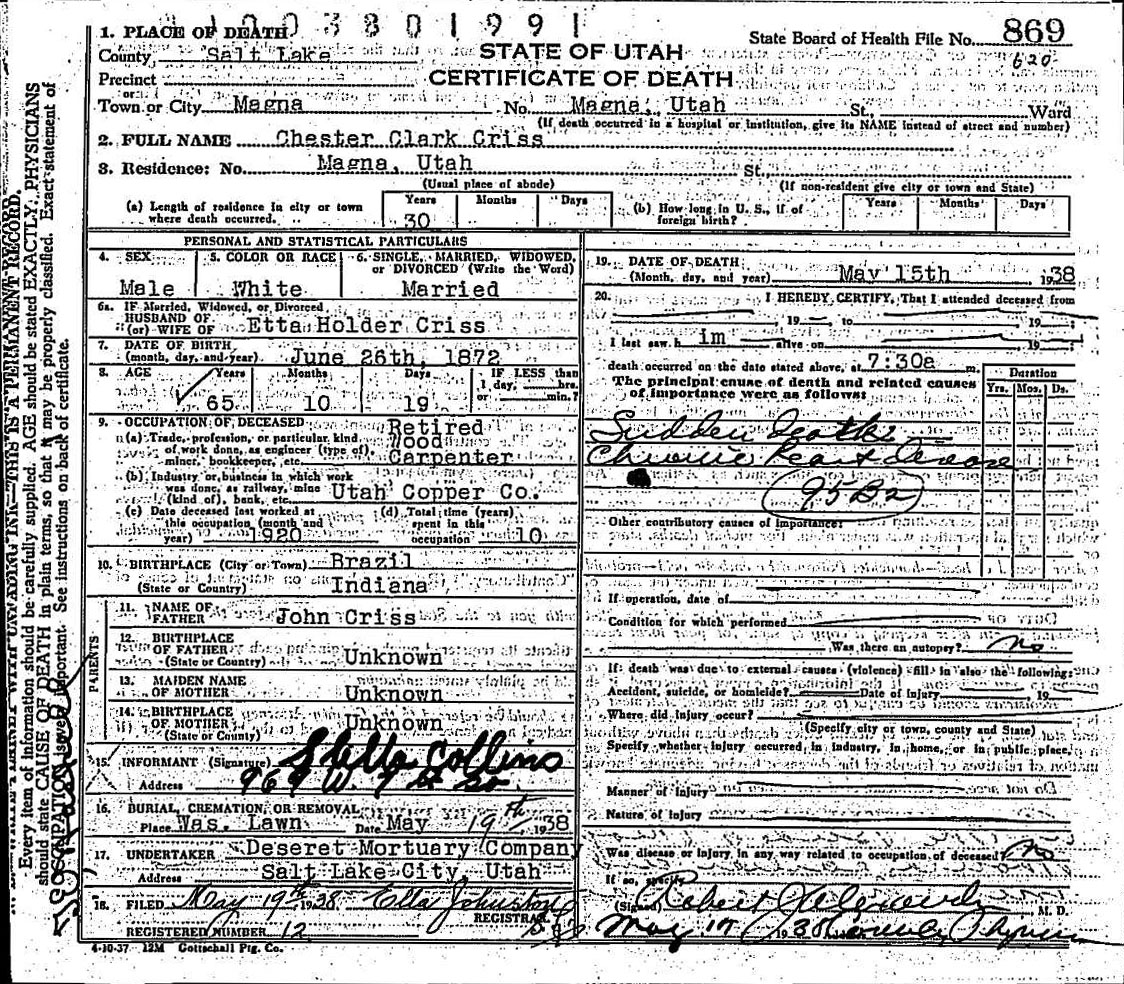 1003801991
1. PLACE OF DEATH
State Board of Health File No. 869
County Salt Lake
STATE OF UTAH
620
Precinct
CERTIFICATE OF DEATH
or
Town or City Magna No. Magna, Utah St., Ward
(If death occurred in a hospital or institution, give its NAME instead of street and number)
2. FULL NAME Chester Clark Criss
3. Residence: No. Magna, Utah St.
(Usual place of abode) (If non-resident give city or town and State)
(a) Length of residence in city or town where death occurred. Years 30 Months Days
(b) How long in U. S., if of foreign birth? Years Months Days
PERSONAL AND STATISTICAL PARTICULARS
4. SEX Male
5. COLOR OR RACE White
6. SINGLE, MARRIED, WIDOWED, or DIVORCED (Write the Word) Married
6a. IF Married, Widowed, or Divorced
HUSBAND OF
(or) WIFE OF Etta Holder Criss
7. DATE OF BIRTH
(month, day, and year) June 26th, 1872
8. AGE Years 65 Months 10 Days 19 IF LESS than 1 day, hrs. or min.?
9. OCCUPATION OF DECEASED Retired
(a) Trade, profession, or particular kind Wood
of work done, as engineer (type of),
miner, bookkeeper, etc. Carpenter
(b) Industry or business in which work
was done, as railway, mine Utah Copper Co.
(kind of), bank, etc.
(c) Date deceased last worked at this occupation (month and year) 1920
(d) Total time (years) spent in this occupation 10
10. BIRTHPLACE (City or Town) Brazil
(State or Country) Indiana
PARENTS
11. NAME OF FATHER John Criss
12. BIRTHPLACE OF FATHER
(State or Country) Unknown
13. MAIDEN NAME OF MOTHER Unknown
14. BIRTHPLACE OF MOTHER
(State or Country) Unknown
15. INFORMANT (Signature) Stella Collins
Address 969 W.
16. BURIAL, CREMATION, OR REMOVAL
Place Was. Lawn Date May 19th, 1938
17. UNDERTAKER Deseret Mortuary Company
Address Salt Lake City, Utah
18. FILED May 19th 1938 Ella Johnston
REGISTRAR
REGISTERED NUMBER 12
4-10-37 12M Gottschall Ptg. Co.
19. DATE OF DEATH
(Month, day, and year) May 15th 1938
20. I HEREBY CERTIFY, That I attended deceased from
19 to 19
I last saw h im alive on 19
death occurred on the date stated above, at 7:30a m.
The principal cause of death and related causes of importance were as follows:
Duration
Yrs. Mos. Ds.
Sudden death
Chronic heart disease
95B2
Other contributory causes of importance:
If operation, date of
Condition for which performed
Was there an autopsy? No
If death was due to external causes (violence) fill in also the following:
Accident, suicide, or homicide? Date of injury 19
Where did injury occur?
(Specify city or town, county and State)
Specify whether injury occurred in industry, in home, or in public place.
Manner of injury
Nature of injury
Was disease or injury in any way related to occupation of deceased? No
If so, specify
(Signed) Robert M. D.
May 1938 County
THIS IS A PERMANENT RECORD.
Every item of information should be carefully supplied. AGE should be stated EXACTLY. PHYSICIANS
should state CAUSE OF DEATH in plain terms, so that it may be properly classified. Exact statement of
OCCUPATION is very important. See instructions on back of certificate.